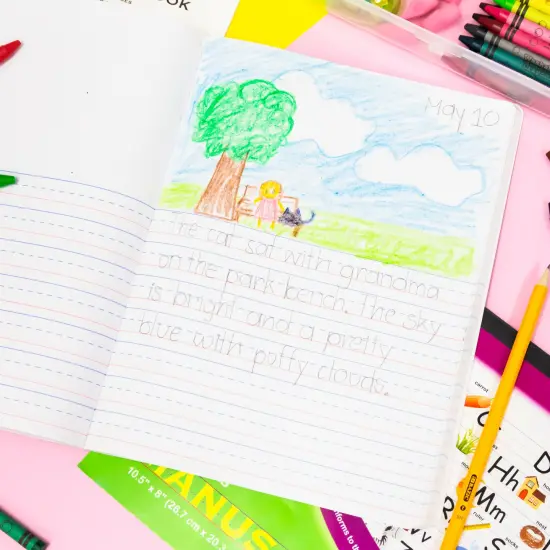 OOK
May 10
The cat sat with grandma
on the park bench. The sky
is bright and a pretty
blue with puffy clouds.
10.5" x 8" (26.7 cm x 20.3
carrot
Hh
Mm